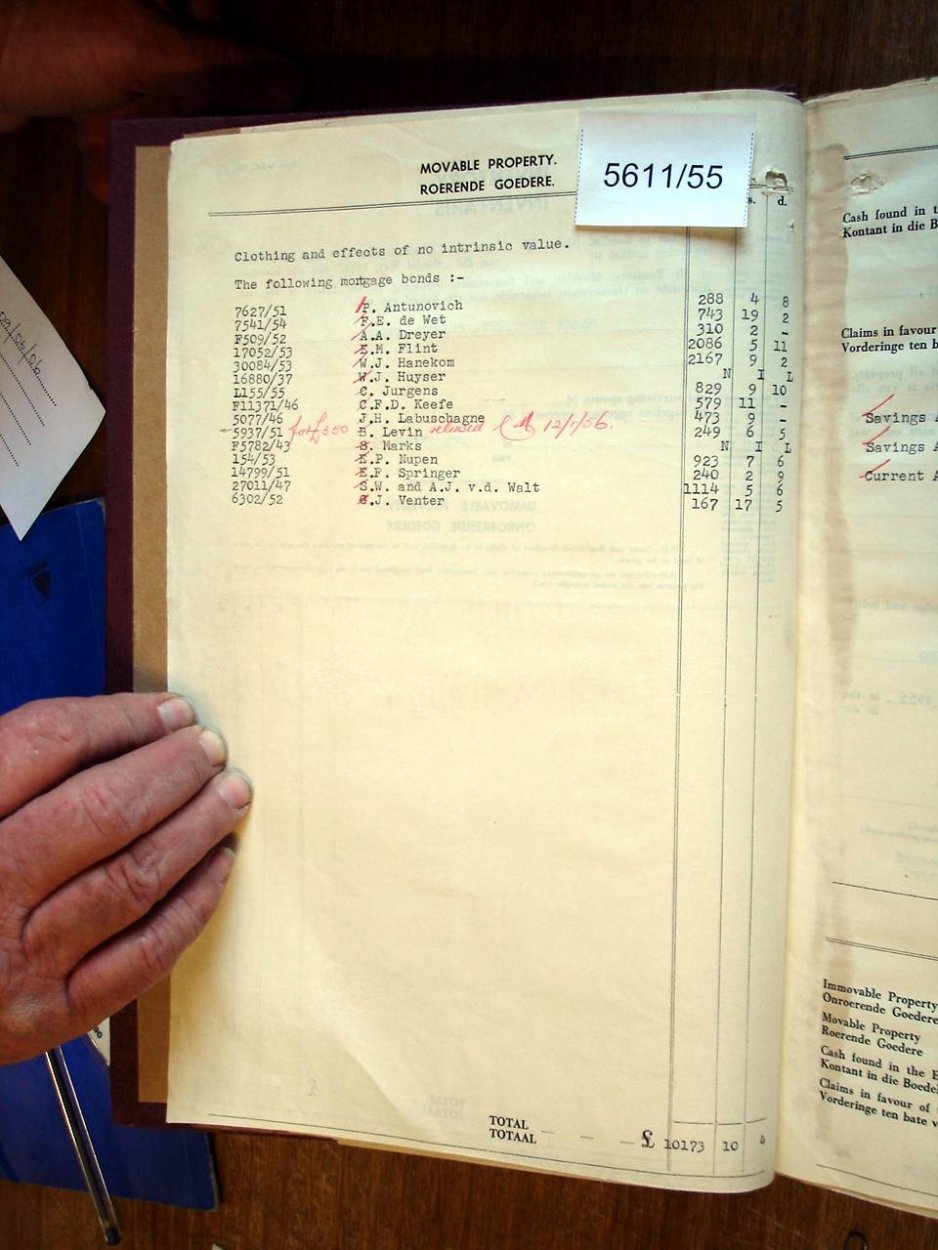 MOVABLE PROPERTY.
ROERENDE GOEDERE.
5611/55
s. d.
Clothing and effects of no intrinsic value.
The following mortgage bonds :-
7627/51 P. Antunovich 288 4 8
7541/54 F.E. de Wet 743 19 2
F509/52 A.A. Dreyer 310 2 -
17052/53 S.M. Flint 2086 5 11
30084/53 W.J. Hanekom 2167 9 2
16880/37 W.J. Huyser N I L
L155/55 C. Jurgens 829 9 10
F11371/46 C.F.D. Keefe 579 11 -
5077/46 J.H. Labuschagne 473 9 -
5937/51 for £300 B. Levin released 12/1/56. 249 6 5
F5782/43 S. Marks N I L
154/53 E.P. Nupen 923 7 6
14799/51 E.F. Springer 240 2 9
27011/47 S.W. and A.J. v.d. Walt 1114 5 6
6302/52 S.J. Venter 167 17 5
TOTAL
TOTAAL £ 10173 10 4
Cash found in t
Kontant in die B
Claims in favour
Vorderinge ten b
Savings A
Savings A
Current A
Immovable Property
Onroerende Goedere
Movable Property
Roerende Goedere
Cash found in the E
Kontant in die Boedel
Claims in favour of
Vorderinge ten bate v